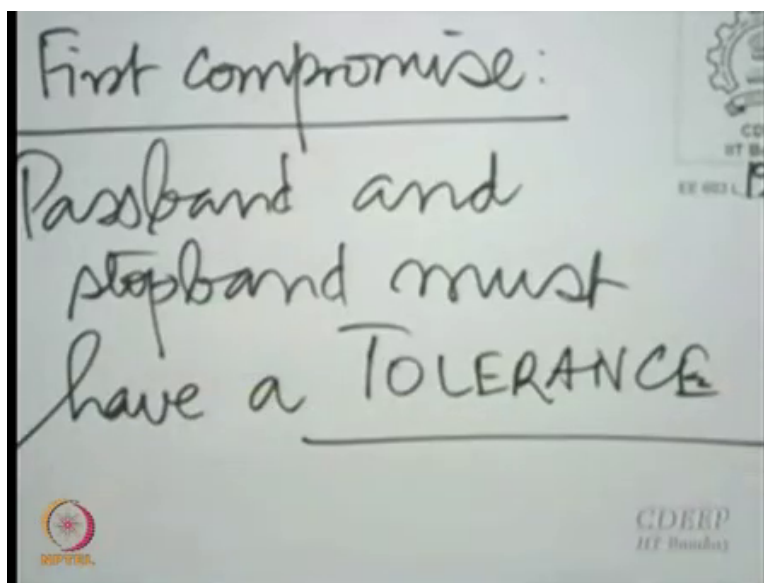 First compromise:
Passband and
stopband must
have a TOLERANCE
CD
IIT B
EE 603 L 19
NPTEL
CDEEP
IIT Bombay